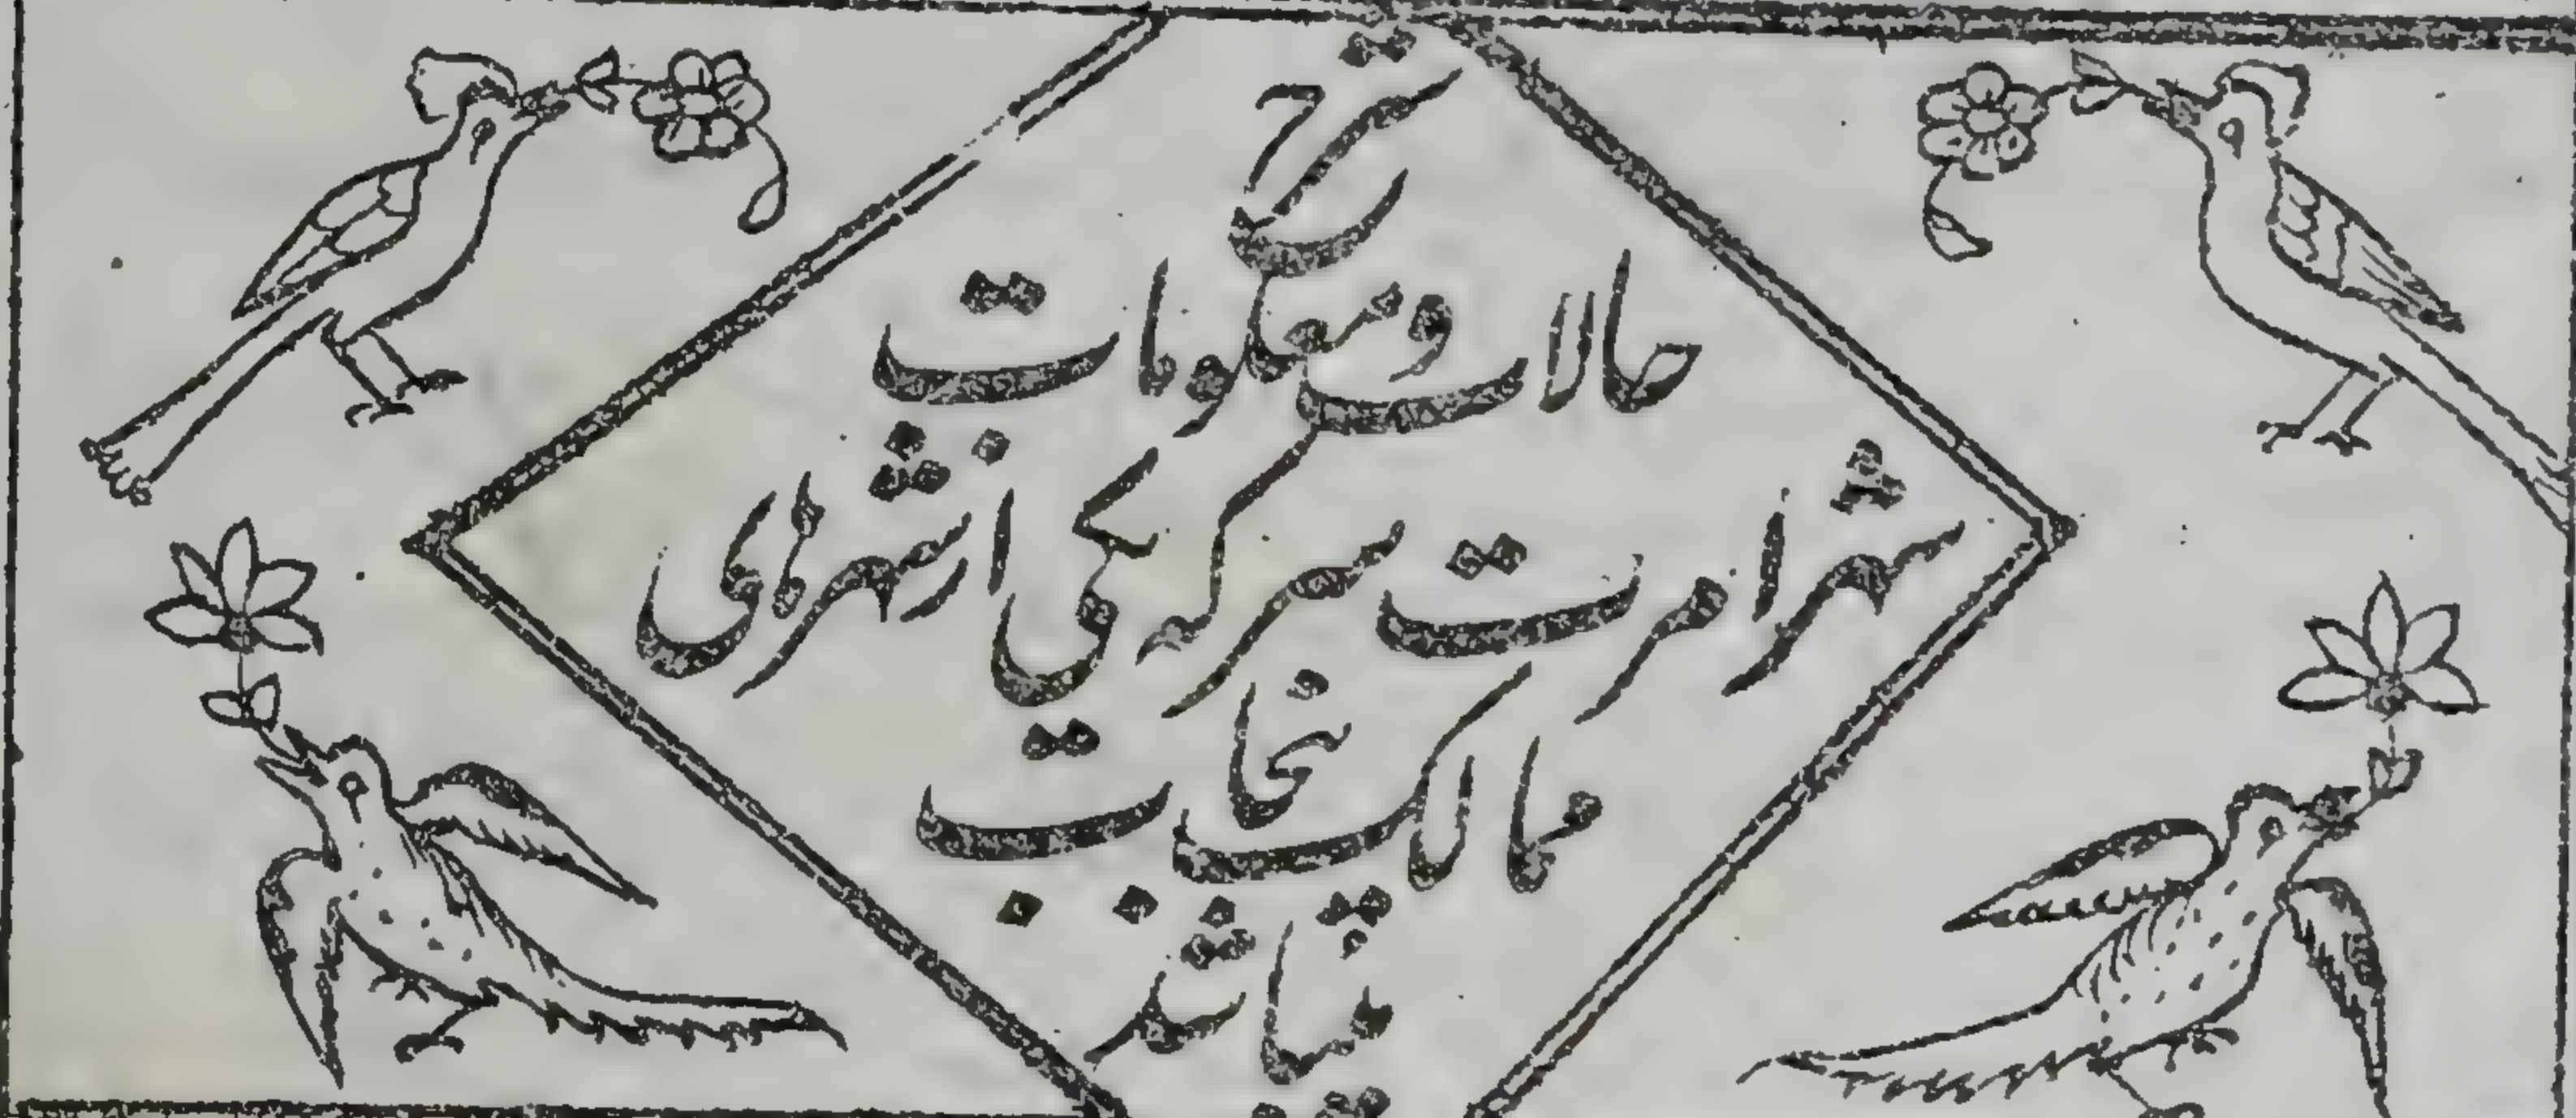 حالات و معلومات
شهر امرت سر که یکی از شهرهای
ممالک پنجاب
میباشد